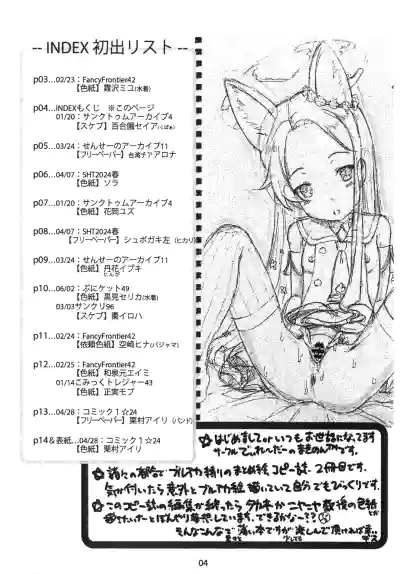 -- INDEX 初出リスト --
p03…02/23：FancyFrontier42
【色紙】霞沢ミユ(水着)
p04…INDEXもくじ ※このページ
01/20：サンクトゥムアーカイブ4
【スケブ】百合園セイア(くぱぁ)
p05…03/24：せんせーのアーカイブ11
【フリーペーパー】台湾チア アロナ
p06…04/07：SHT2024春
【色紙】ソラ
p07…01/20：サンクトゥムアーカイブ4
【色紙】花岡ユズ
p08…04/07：SHT2024春
【フリーペーパー】シュポガキ左(ヒカリ)
p09…03/24：せんせーのアーカイブ11
【色紙】丹花イブキ
p10…06/02：ぷにケット49
【色紙】黒見セリカ(水着)
03/03サンクリ96
【スケブ】棗イロハ
p11…02/24：FancyFrontier42
【依頼色紙】空崎ヒナ(パジャマ)
p12…02/25：FancyFrontier42
【色紙】和泉元エイミ
01/14こみっくトレジャー43
【色紙】正実モブ
p13…04/28：コミック1☆24
【フリーペーパー】栗村アイリ(バンド)
p14＆表紙…04/28：コミック1☆24
【色紙】栗村アイリ
☆はじめましてorいつもお世話になってます
サークルでぃれいんだーのまものんですっ。
☆諸々の都合でブルアカ縛りのまとめ絵コピー誌、2冊目です。
気が付いたら意外とブルアカ絵描いていて自分でもびっくりです。
☆このコピー誌の編集が終ったら
04